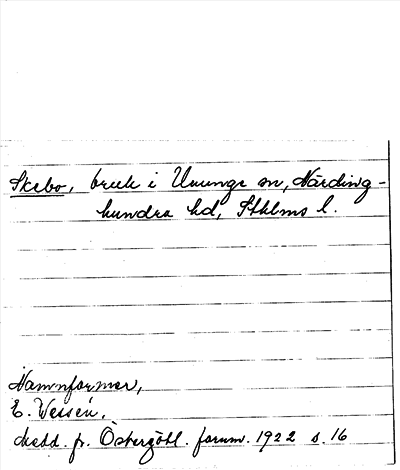 Skebo, bruk i Ununge sn, Närding-
hundra hd, Sthlms l.
Namnformer,
E. Wessén,
Medd. fr. Östergötl. fornm. 1922 s. 16